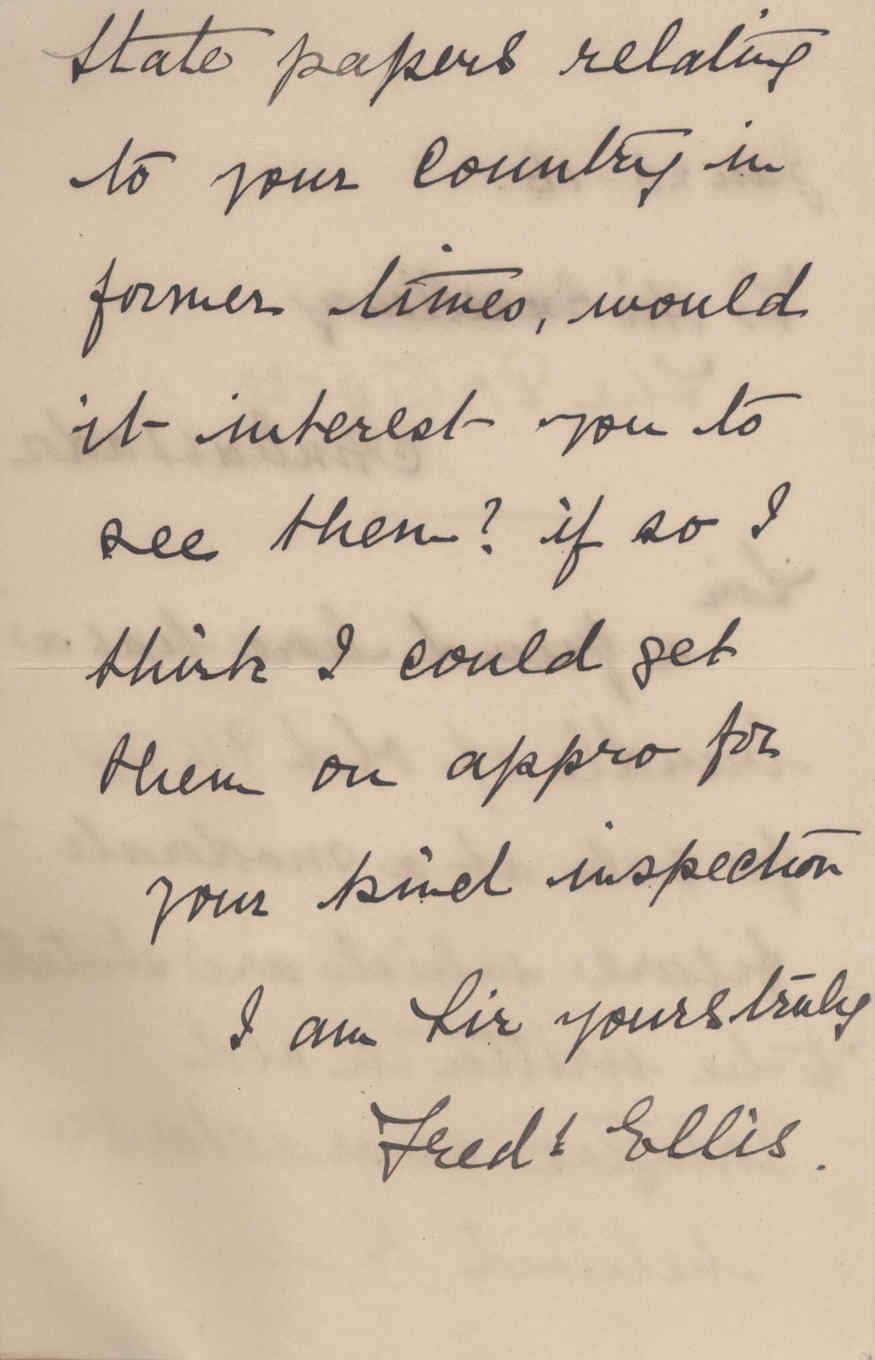 State papers relating
to your Country in
former times, would
it interest you to
see them? if so I
think I could get
them on appro for
your kind inspection
I am Sir yours truly
Fredk Ellis.